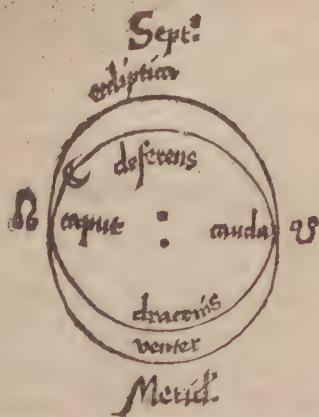 Septˡ
ecliptica
deferens
☊ caput cauda ☋
draconis
venter
Merid.